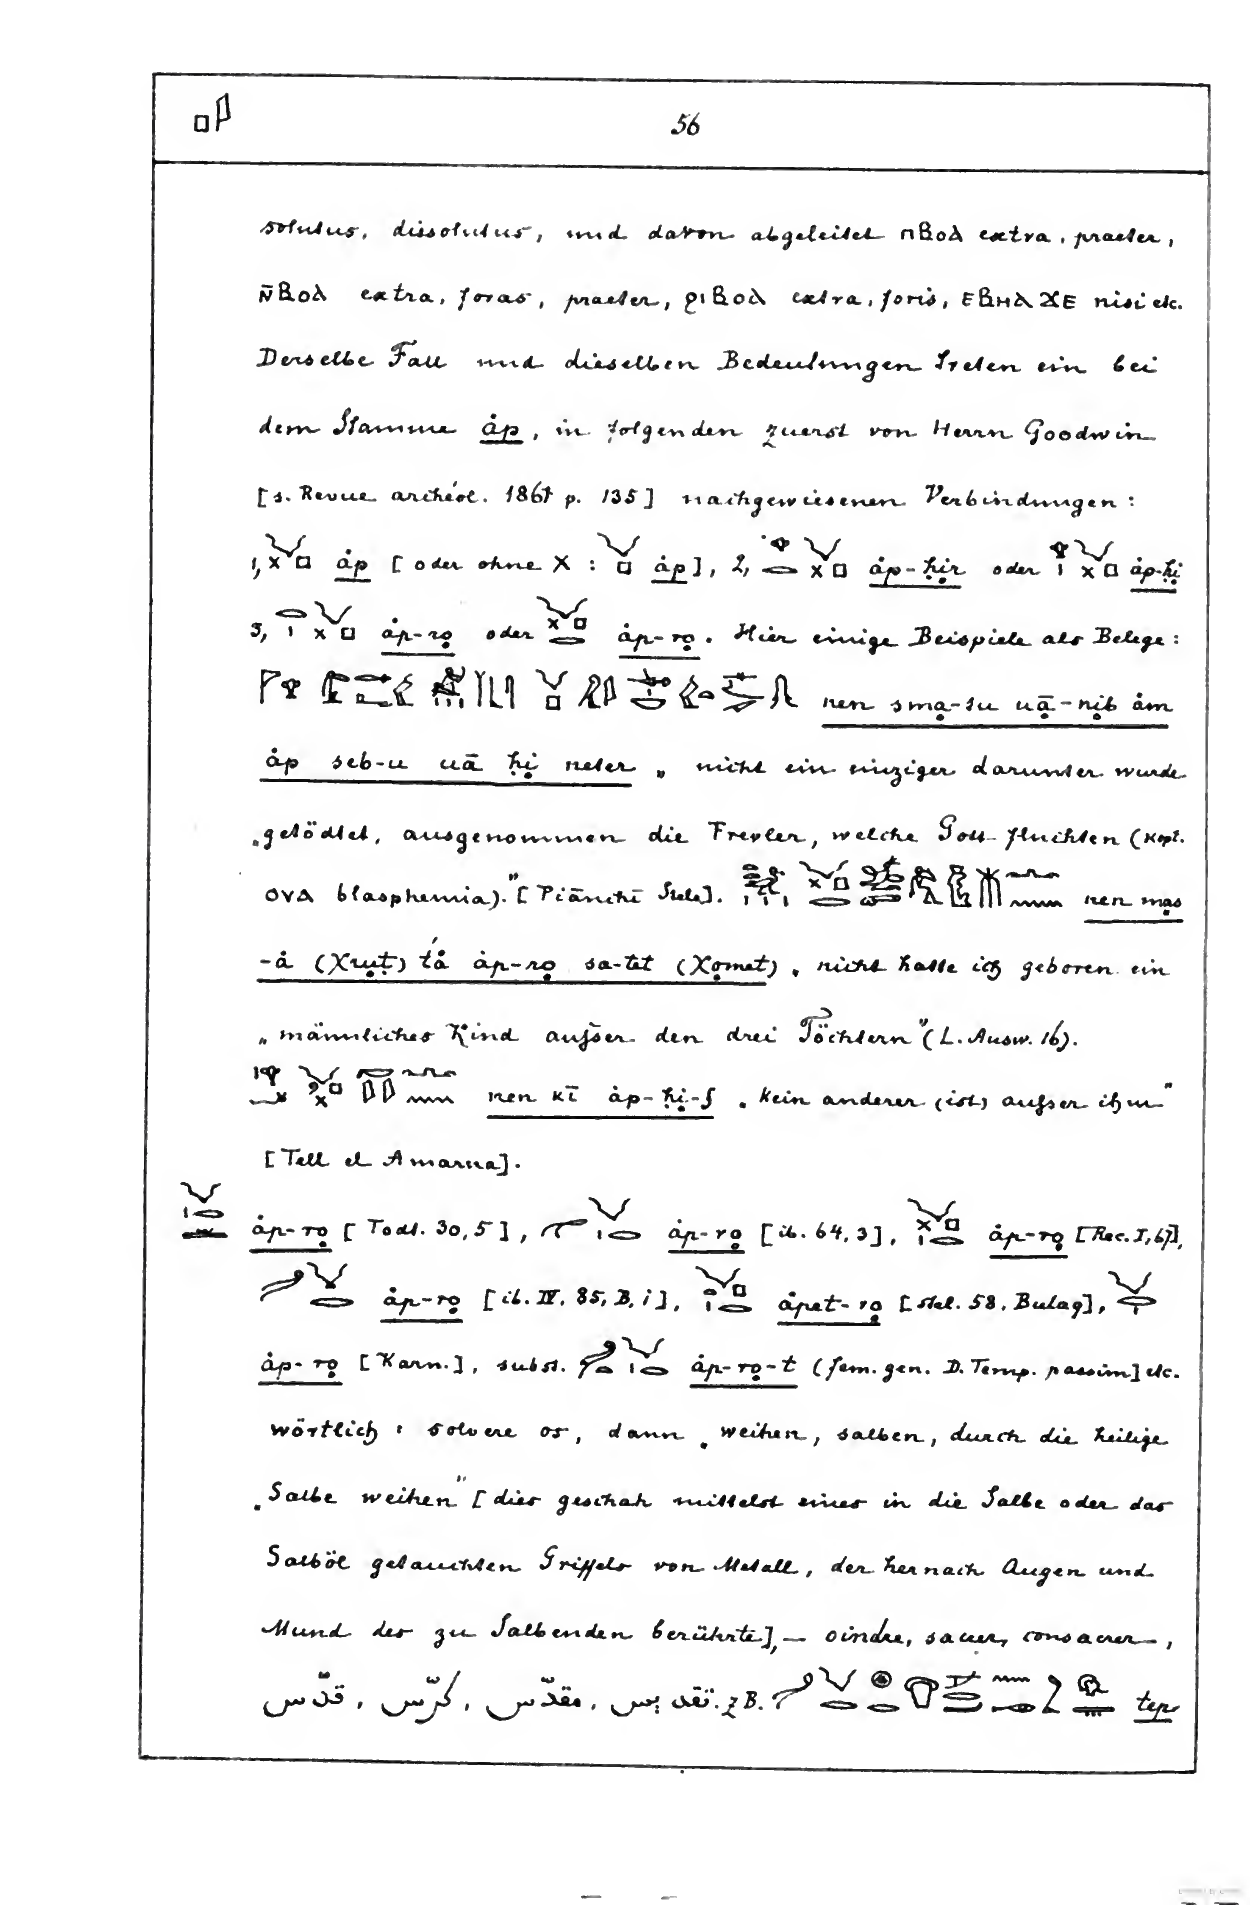 56
solutus, dissolutus, und davon abgeleitet ⲡⲃⲟⲗ extra, praeter,
ⲛ̄ⲃⲟⲗ extra, foras, praeter, ϩⲓⲃⲟⲗ extra, foris, ⲉⲃⲏⲗ ϫⲉ nisi etc.
Derselbe Fall und dieselben Bedeutungen treten ein bei
dem Stamme ȧp, in folgenden zuerst von Herrn Goodwin
[s. Revue archéol. 1861 p. 135] nachgewiesenen Verbindungen:
1, ȧp [oder ohne X : ȧp], 2, ȧp-ḥịr oder ȧp-ḥị
3, ȧp-rọ oder ȧp-rọ. Hier einige Beispiele als Belege:
nen smạ-tu uạ̄-nịb ȧm
ȧp seb-u uā ḥị neter „nicht ein einziger darunter wurde
„getödtet, ausgenommen die Frevler, welche Gott fluchten (kopt.
ⲟⲩⲁ blasphemia)." [Piānchī Stele]. nen mạs
-ȧ (Xrụṭ) t́ȧ ȧp-rọ sa-tet (Xọmet) „nicht hatte ich geboren ein
„männliches Kind außer den drei Töchtern" (L. Ausw. 16).
nen kī ȧp-ḥị-f „kein anderer (ist) außer ihm"
[Tell el Amarna].
ȧp-rọ [Todt. 30,5], ȧp-rọ [ib. 64,3], ȧp-rọ [Rec. I, 67],
ȧp-rọ [ib. IV. 85, B, i], ȧpet-rọ [Stel. 58. Bulaq],
ȧp-rọ [Karn.], subst. ȧp-rọ-t (fem. gen. D. Temp. passim] etc.
wörtlich: solvere os, dann „weihen, salben, durch die heilige
„Salbe weihen" [dies geschah mittelst eines in die Salbe oder das
Salböl getauchten Griffels von Metall, der hernach Augen und
Mund des zu Salbenden berührte], — oindre, sacrer, consacrer —,
قدّس , كرّس , مقدّس , تقديس . z B. tep